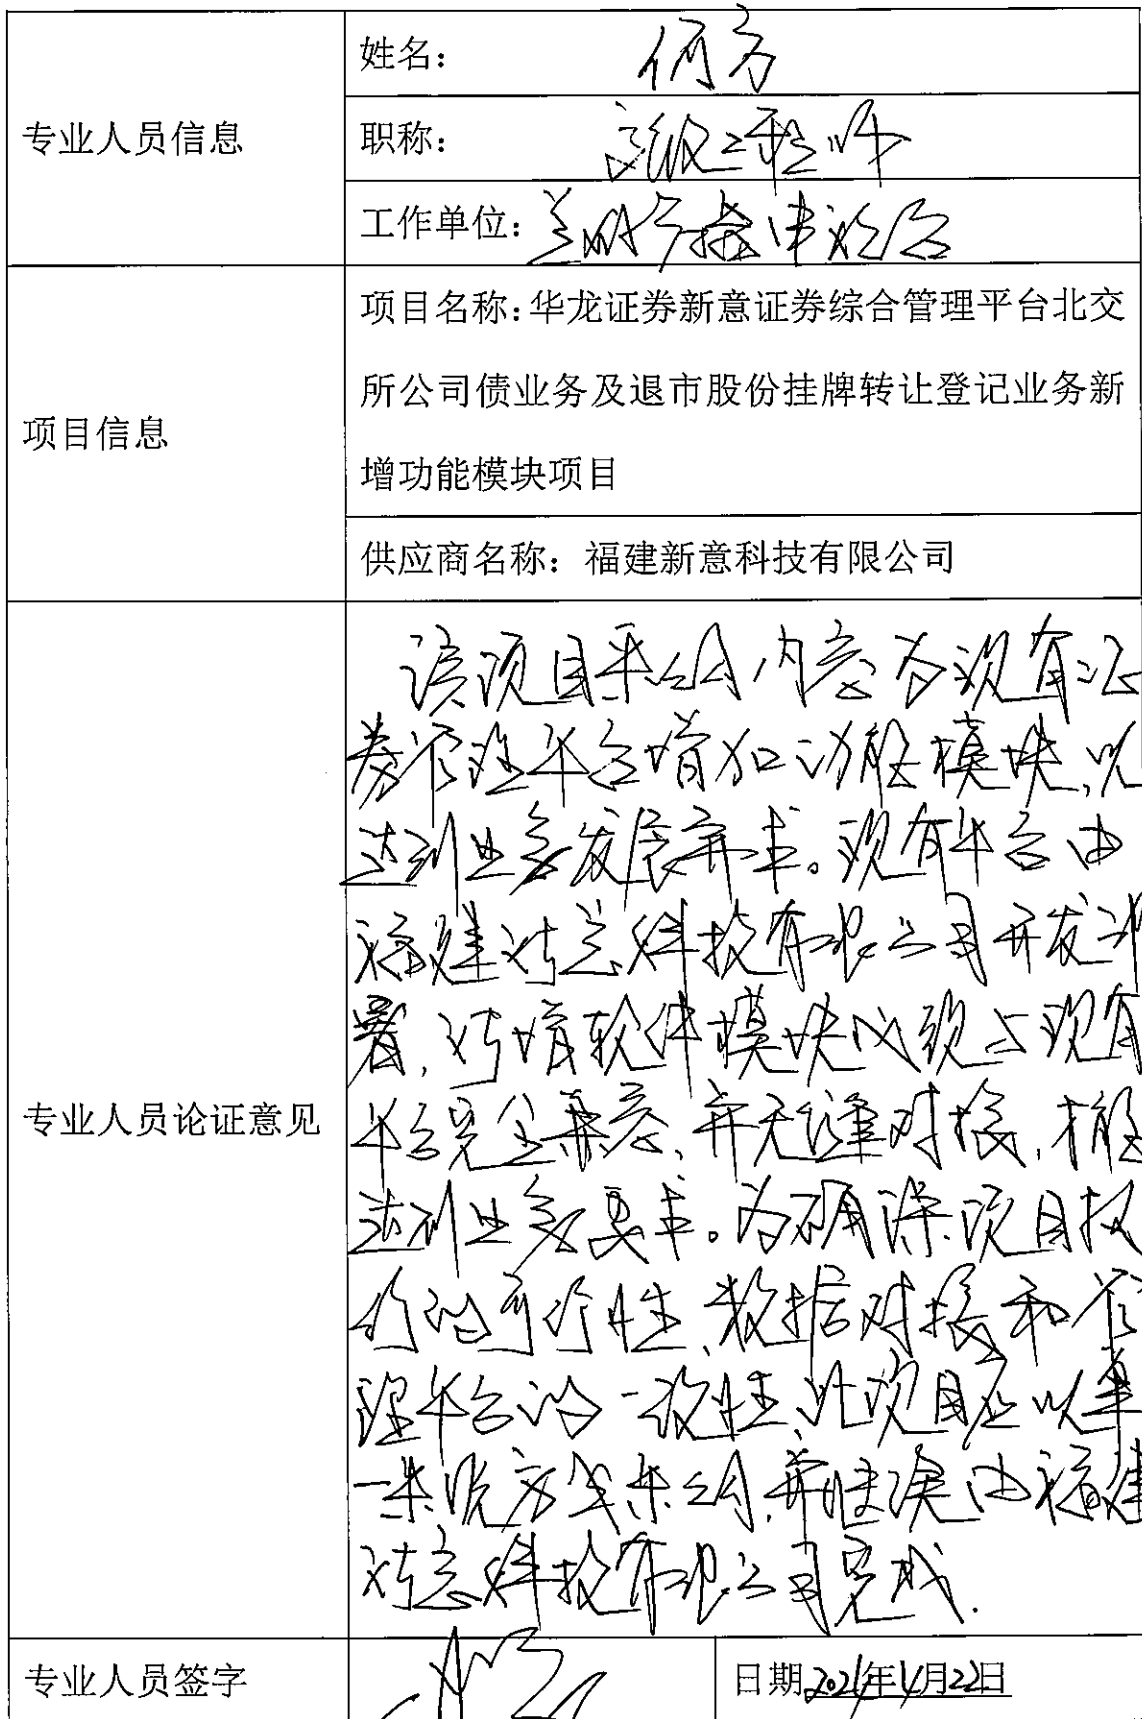 专业人员信息
姓名：何方
职称：高级工程师
工作单位：
项目信息
项目名称：华龙证券新意证券综合管理平台北交
所公司债业务及退市股份挂牌转让登记业务新
增功能模块项目
供应商名称：福建新意科技有限公司
专业人员论证意见
该项目采购内容为现有证
券管理平台增加功能模块，以
达到业务发展需求。现有平台由
福建新意科技有限公司开发部
署，新增软件模块必须与现有
平台完全兼容，并无缝对接，才能
达到业务要求。为确保项目技
的可行性，数据对接和管
理平台的一致性，此项目应以单
一来源方式采购，并继续由福建
新意科技有限公司完成.
专业人员签字
日期 2024年4月22日